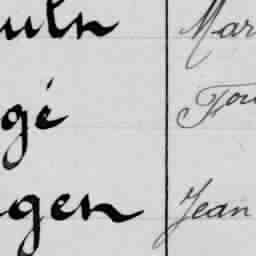 uln Mar
gé Fou
gen Jean